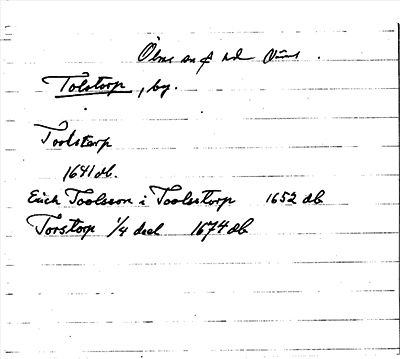 Ölme sn
Tolstorp, by.
Toolstorp
1641 db.
Erich Toolsson i Toolsstorp 1652 db
Torstorp 1/4 deel 1674 db